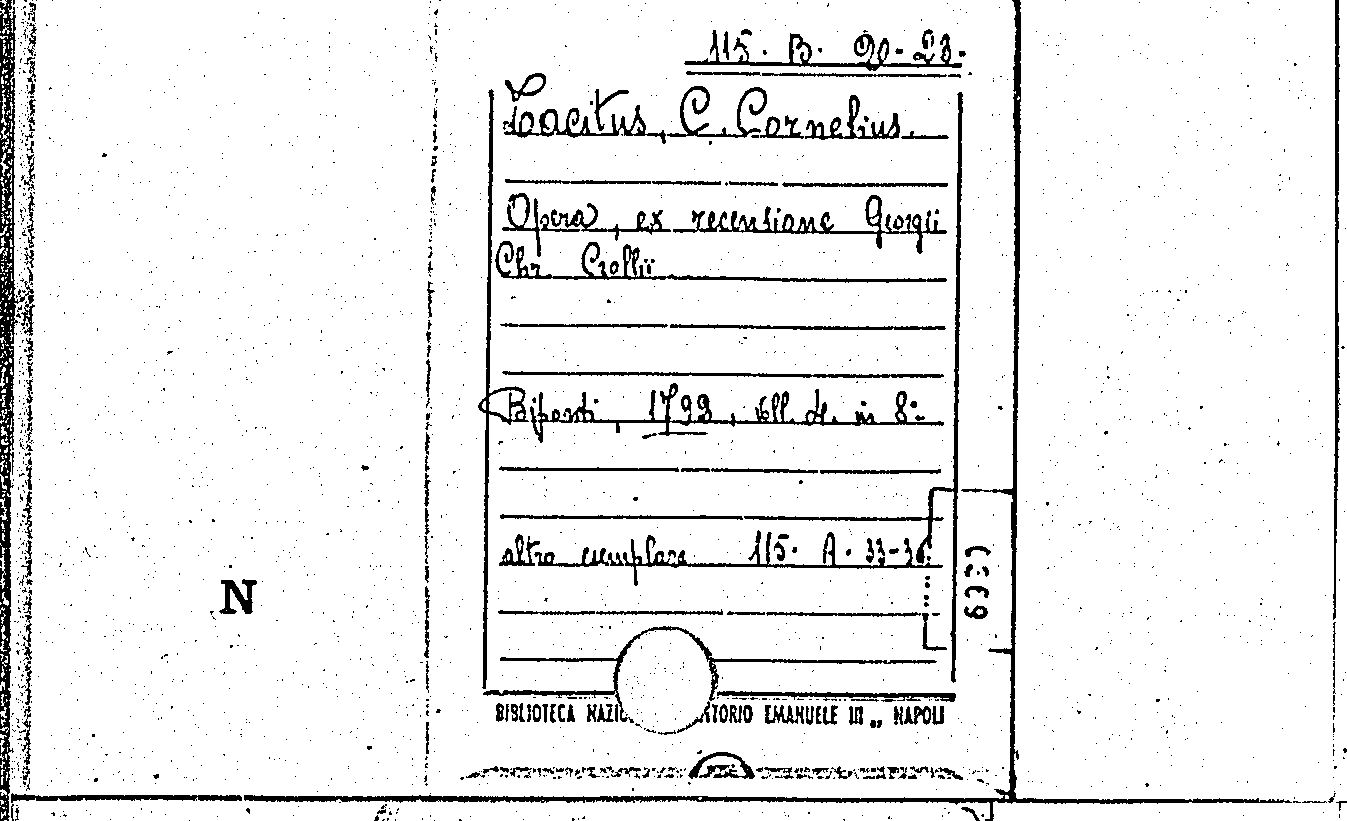 115. B. 20-23.
Tacitus, C. Cornelius.
Opera, ex recensione Georgii
Chr. Crollii
Biponti, 1792, voll. 4. in 8:-
altro esemplare 115. A. 33-36.
N
BIBLIOTECA NAZIO TTORIO EMANUELE III „ NAPOLI